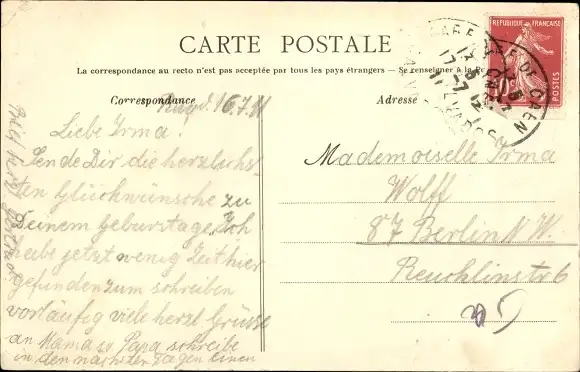 CARTE POSTALE
La correspondance au recto n'est pas acceptée par tous les pays étrangers — Se renseigner à la
Correspondance
Adresse
RÉPUBLIQUE FRANÇAISE
POSTES
GARE DE CAEN
16.7.11
Liebe Irma.
Sende Dir die herzlichs-
ten Glückwünsche zu
Deinem Geburtstage, Ich
habe jetzt wenig Zeit hier
gefunden zum schreiben
vorläufig viele herzl Grüsse
an Mama u Papa schreibe
in den nächsten Tagen einen
Mademoiselle Irma
Wolff
87 Berlin N. W.
Reuchlinstr 6